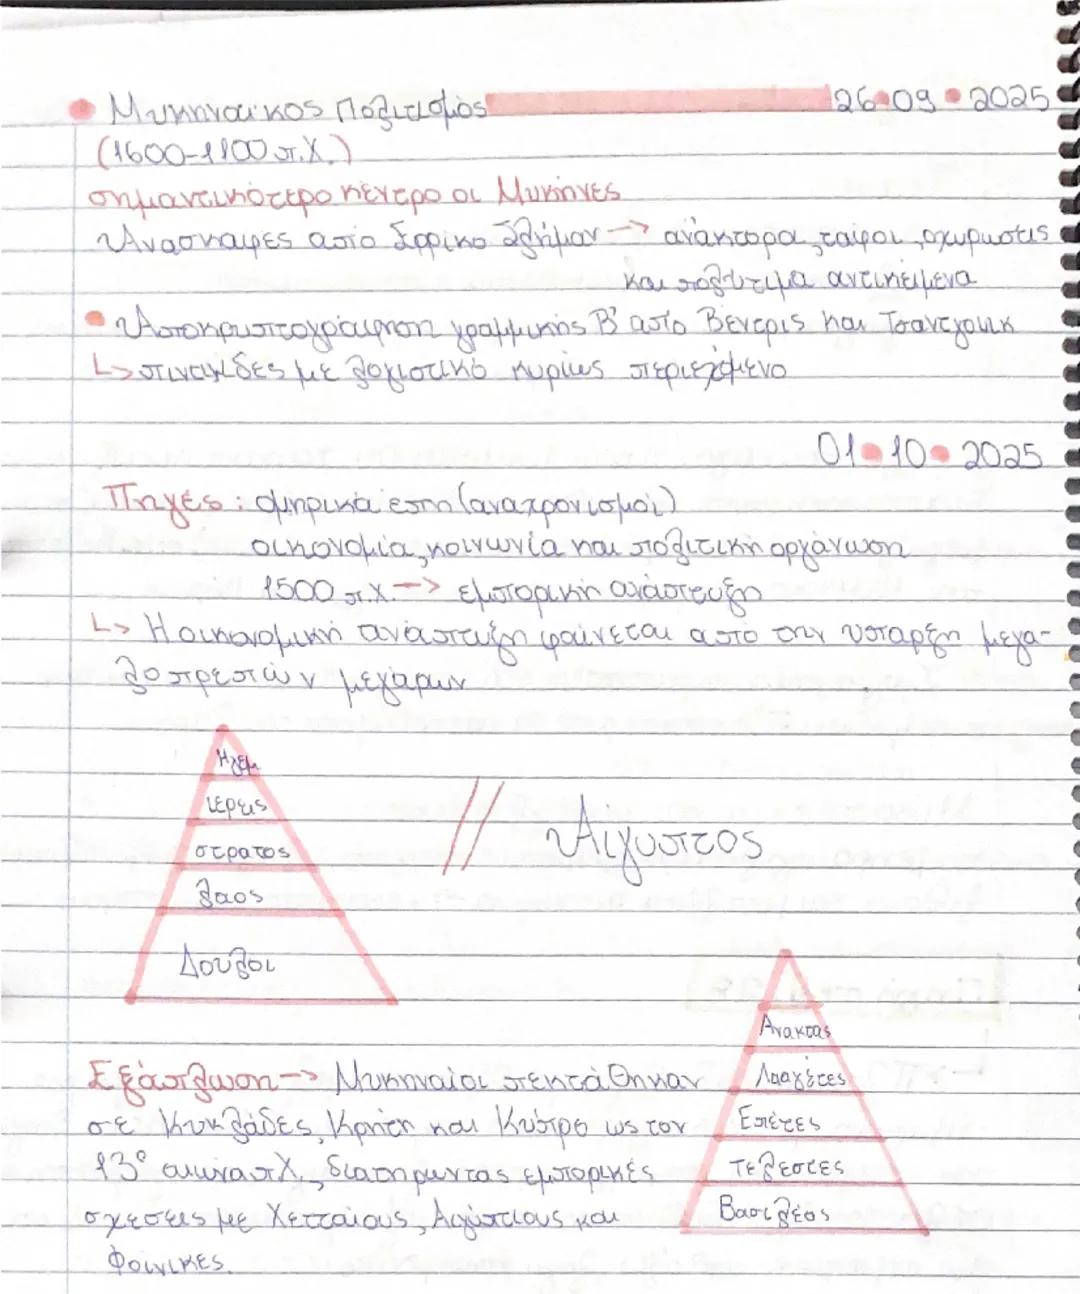 Μυκηναϊκος Πολιτισμός 26•09•2025
(1600-1100 π.Χ.)
σημαντικότερο κέντρο οι Μυκήνες
Ανασκαφές από Ερρίκο Σλήμαν → ανάκτορα, τάφοι, οχυρώσεις
και πολύτιμα αντικείμενα
• Αποκρυπτογράφηση γραμμικής Β' από Βέντρις και Τσάντγουικ
↳ πινακίδες με λογιστικό κυρίως περιεχόμενο
01•10•2025
Πηγές: ομηρικά έπη (αναχρονισμοί)
οικονομία, κοινωνία και πολιτική οργάνωση
1500 π.Χ. → εμπορική ανάπτυξη
↳ Η οικονομική ανάπτυξη φαίνεται από την ύπαρξη μεγα-
λοπρεπών μεγάρων
Ηγεμ
ιερεις
στρατος
λαος
Δουλοι
// Αίγυπτος
Εξάπλωση → Μυκηναίοι πεκτάθηκαν
σε Κυκλάδες, Κρήτη και Κύπρο ως τον
13º αιώνα π.Χ., διατηρώντας εμπορικές
σχέσεις με Χετταίους, Αιγύπτιους και
Φοίνικες.
Ανακτας
Λααγέτες
Επέτες
Τελεστες
Βασιλέας